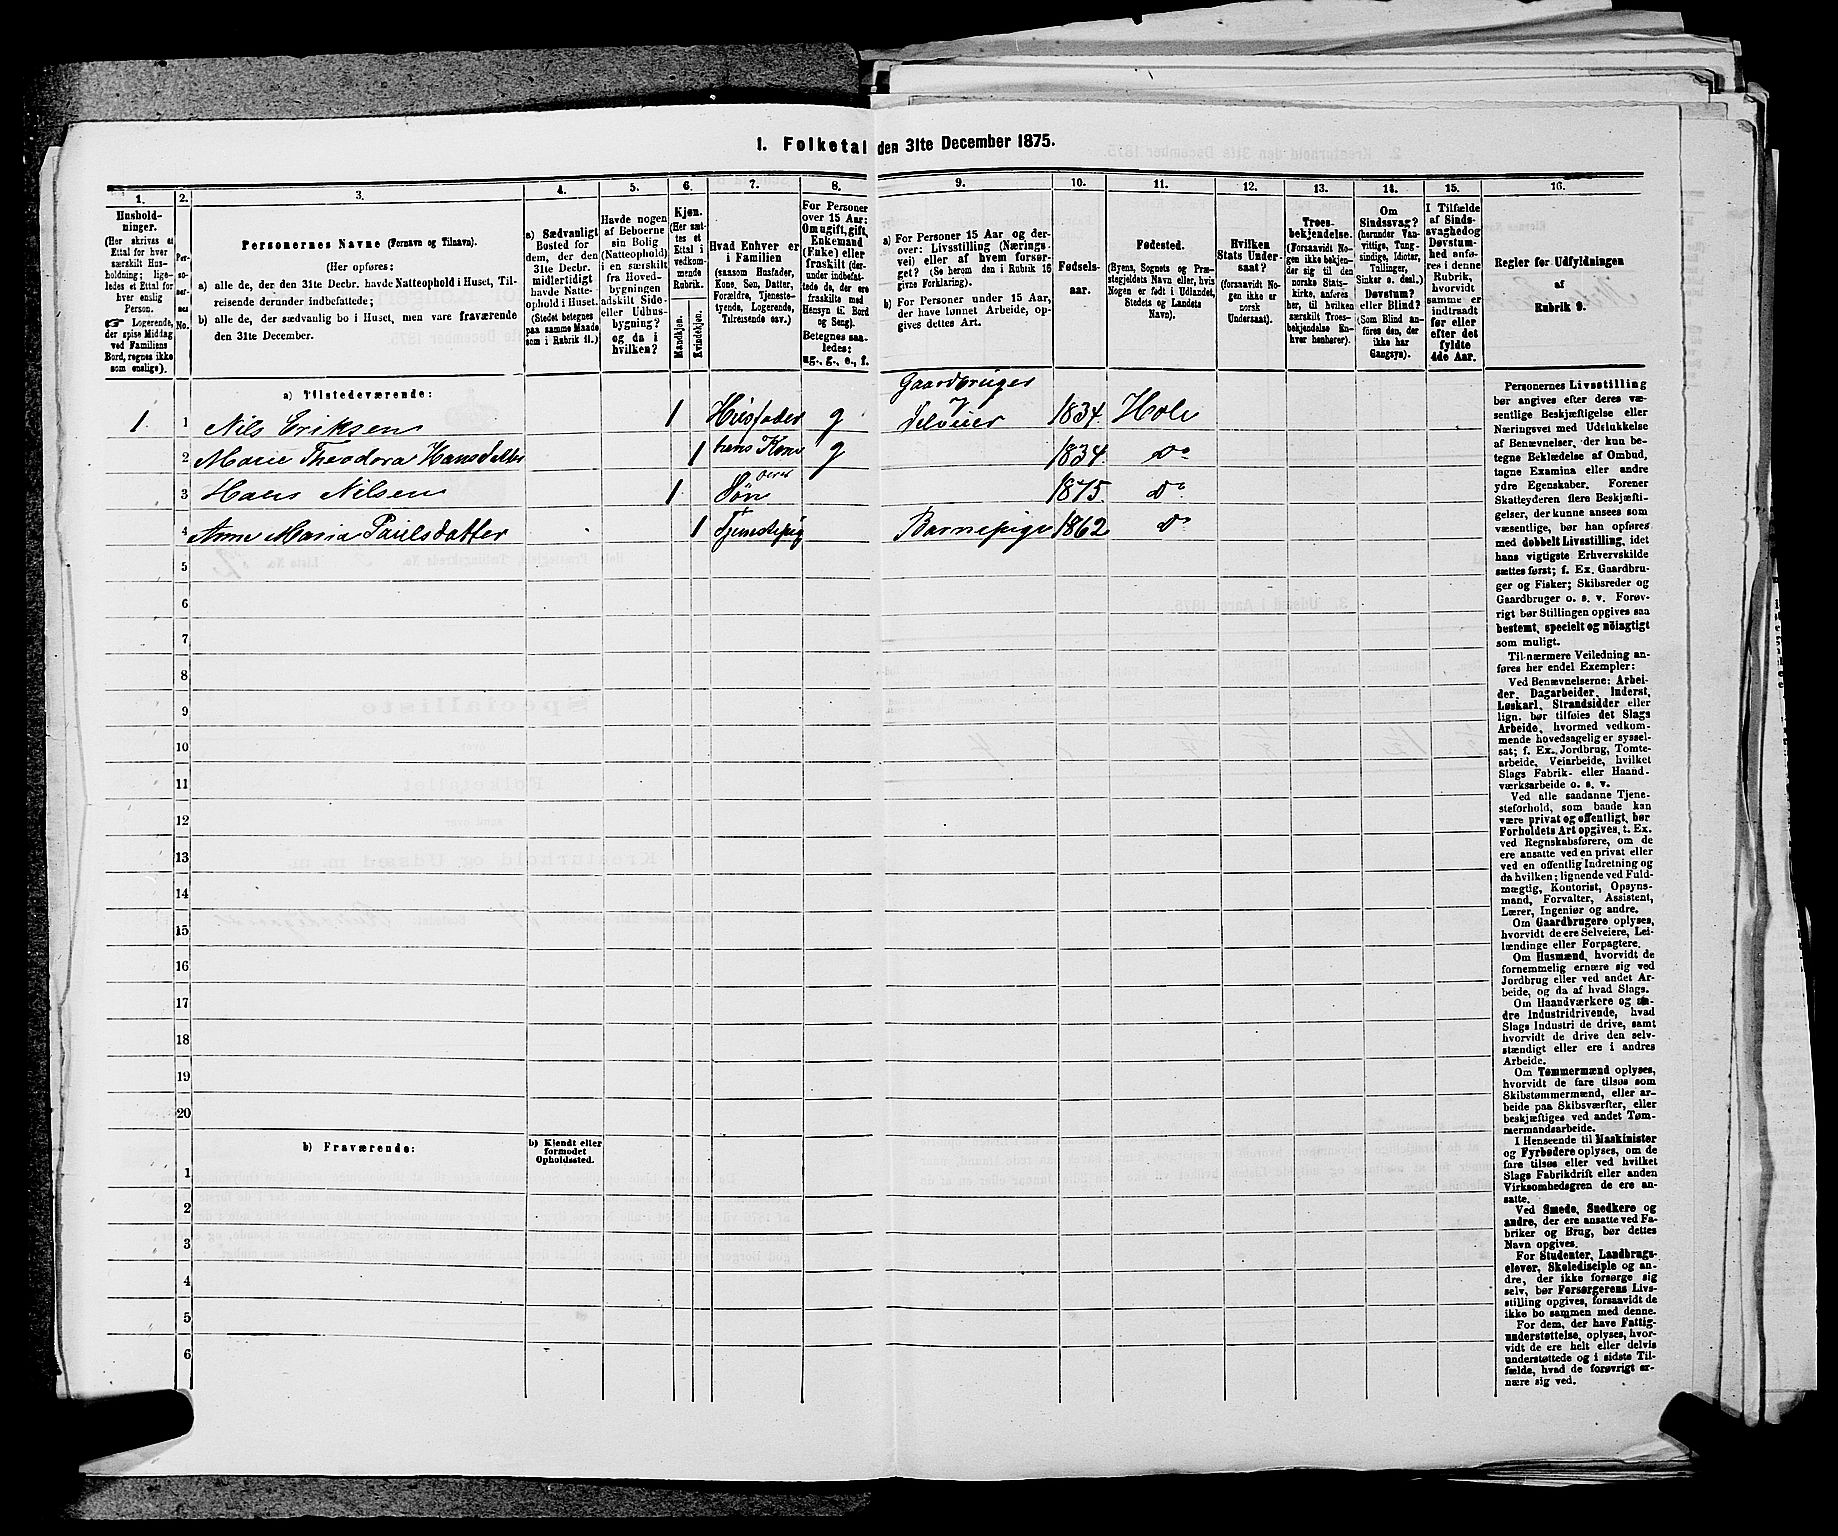 1. Folketal den 31te December 1875.
1.
Hushold-
ninger.
(Her skrives et
Ettal for hver
særskilt Hus-
holdning; lige-
ledes et Ettal for
hver enslig
Person.
☞ Logerende,
der spise Middag
ved Familiens
Bord, regnes ikke
som enslige).
2.
Per-
so-
ner-
nes
No.
3.
Personernes Navne (Fornavn og Tilnavn).
(Her opføres:
a) alle de, der den 31te Decbr. havde Natteophold i Huset, Til-
reisende derunder indbefattede;
b) alle de, der sædvanlig bo i Huset, men vare fraværende
den 31te December.
4.
a) Sædvanligt
Bosted for
dem, der den
31te Decbr.
midlertidigt
havde Natte-
ophold i Huset.
(Stedet betegnes
paa samme Maade
som i Rubrik 11.)
5.
Havde nogen
af Beboerne
sin Bolig
(Natteophold)
i en særskilt
fra Hoved-
bygningen
adskilt Side-
eller Udhus-
bygning?
og da i
hvilken?
6.
Kjøn.
(Her sæt-
tes et
Ettal i
vedkom-
mende
Rubrik.
Mandkjøn.
Kvindekjøn.
7.
Hvad Enhver er
i Familien
(saasom Husfader,
Kone, Søn, Datter,
Forældre, Tjeneste-
tyende, Logerende,
Tilreisende osv.)
8.
For Personer
over 15 Aar:
Om ugift, gift,
Enkemand
(Enke) eller
fraskilt (der-
under indbefat-
tede de, der ere
fraskilte med
Hensyn til Bord
og Seng).
Betegnes saa-
ledes:
ug., g., e., f.
9.
a) For Personer 15 Aar og der-
over: Livsstilling (Nærings-
vei) eller af hvem forsør-
get? (Se herom den i Rubrik 16
givne Forklaring).
b) For Personer under 15 Aar,
der have lønnet Arbeide, op-
gives dettes Art.
10.
Fødsels-
aar.
11.
Fødested.
(Byens, Sognets og Præ-
stegjeldets Navn eller, hvis
Nogen er født i Udlandet,
Stedets og Landets
Navn).
12.
Hvilken
Stats Under-
saat?
(forsaavidt No-
gen ikke er
norsk
Undersaat).
13.
Troes-
bekjendelse.
(Forsaavidt No-
gen ikke bekjen-
der sig til den
norske Stats-
kirke, anføres
her, til hvilken
særskilt Troes-
bekjendelse En-
hver henhører).
14.
Om
Sindssvag?
(herunder Van-
vittige, Tung-
sindige, Idioter,
Tullinger,
Sinker o. desl.)
Døvstum?
eller Blind?
(Som Blind an-
føres den, der
ikke har
Gangsyn).
15.
I Tilfælde
af Sinds-
svaghed og
Døvstum-
hed anfø-
res i denne
Rubrik,
hvorvidt
samme er
indtraadt
før eller
efter det
fyldte
4de Aar.
16.
Regler for Udfyldningen
af
Rubrik 9.
a) Tilstedeværende:
1 1 Nils Eriksen 1 Husfader g Gaardbruger Selveier 1834. Hole
2 Marie Theodora Hansdatter 1 hans Kone g 1834. do
3 Hans Nilsen 1 deres Søn 1875. do
4 Anne Maria Paulsdatter 1 Tjenestepig Barnepige 1862 do
5
6
7
8
9
10
11
12
13
14
15
16
17
18
19
20
b) Fraværende:
b) Kjendt eller
formodet
Opholdssted.
1
2
3
4
5
6
Personernes Livsstilling
bør angives efter deres væ-
sentlige Beskjæftigelse eller
Næringsvei med Udelukkelse
af Benævnelser, der kun be-
tegne Beklædelse af Ombud,
tagne Examina eller andre
ydre Egenskaber. Forener
Skatteyderen flere Beskjæfti-
gelser, der kunne ansees som
væsentlige, bør han opføres
med dobbelt Livsstilling, idet
hans vigtigste Erhvervskilde
sættes først; f. Ex. Gaardbru-
ger og Fisker; Skibsreder og
Gaardbruger o. s. v. Forøv-
rigt bør Stillingen opgives saa
bestemt, specielt og nøiagtigt
som muligt.
Til nærmere Veiledning an-
føres her endel Exempler:
Ved Benævnelserne: Arbei-
der, Dagarbeider, Inderst,
Løskarl, Strandsidder eller
lign. bør tilføies det Slags
Arbeide, hvormed vedkom-
mende hovedsagelig er syssel-
sat; f. Ex. Jordbrug, Tomte-
arbeide, Veiarbeide, hvilket
Slags Fabrik- eller Haand-
værksarbeide o. s. v.
Ved alle saadanne Tjene-
steforhold, som baade kan
være privat og offentligt, bør
Forholdets Art opgives, t. Ex.
ved Regnskabsførere, om de
ere ansatte ved en privat eller
ved en offentlig Indretning og
da hvilken; lignende ved Fuld-
mægtig, Kontorist, Opsyns-
mand, Forvalter, Assistent,
Lærer, Ingeniør og andre.
Om Gaardbrugere oplyses,
hvorvidt de ere Selveiere, Lei-
lændinge eller Forpagtere.
Om Husmænd, hvorvidt de
fornemmelig ernære sig ved
Jordbrug eller ved andet Ar-
beide, og da af hvad Slags.
Om Haandværkere og an-
dre Industridrivende, hvad
Slags Industri de drive, samt
hvorvidt de drive den selv-
stændigt eller ere i andres
Arbeide.
Om Tømmermænd oplyses,
hvorvidt de fare tilsøs som
Skibstømmermænd, eller ar-
beide paa Skibsværfter, eller
beskjæftiges ved andet Tøm-
mermandsarbeide.
I Henseende til Maskinister
og Fyrbødere oplyses, om de
fare tilsøs eller ved hvilket
Slags Fabrikdrift eller anden
Virksomhedsgren de ere an-
satte.
Ved Smede, Snedkere og
andre, der ere ansatte ved Fa-
briker og Brug, bør dettes
Navn opgives.
For Studenter, Landbrugs-
elever, Skoledisciple og an-
dre, der ikke forsørge sig
selv, bør Forsørgerens Livs-
stilling opgives, forsaavidt de
ikke bo sammen med denne.
For dem, der have Fattig-
understøttelse, oplyses, hvor-
vidt de ere helt eller delvis
understøttede og i sidste Til-
fælde, hvad de forøvrigt er-
nære sig ved.